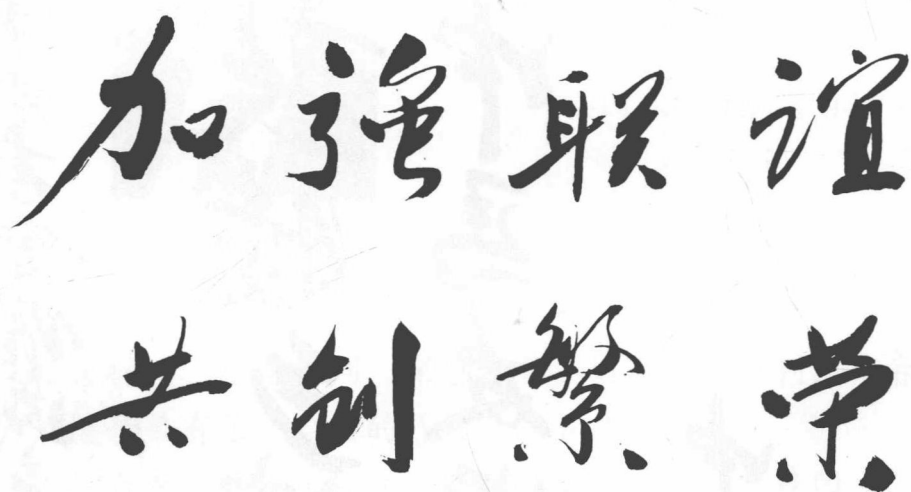 加强联谊
共创繁荣